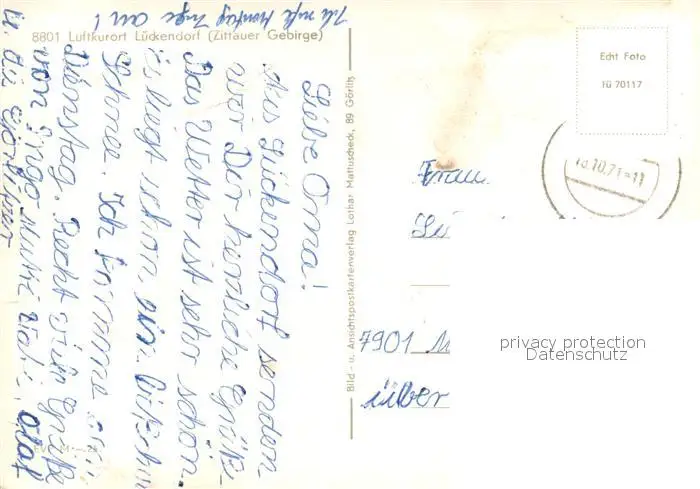 8801 Luftkurort Lückendorf (Zittauer Gebirge)
Ich rufe Montag Inge an!
Liebe Oma!
Aus Lückendorf senden
wir Dir herzliche Grüße.
Das Wetter ist sehr schön.
Es liegt schon ein bißchen
Schnee. Ich komme am
Dienstag. Recht viele Grüße
von Ingo, Mutti, Vati, Olaf
u. die
Bild - u. Ansichtspostkartenverlag Lothar Mattuscheck, 89 Görlitz
Echt Foto
Tü 70117
18.10.71-11
Frau
7901
über
privacy protection
Datenschutz